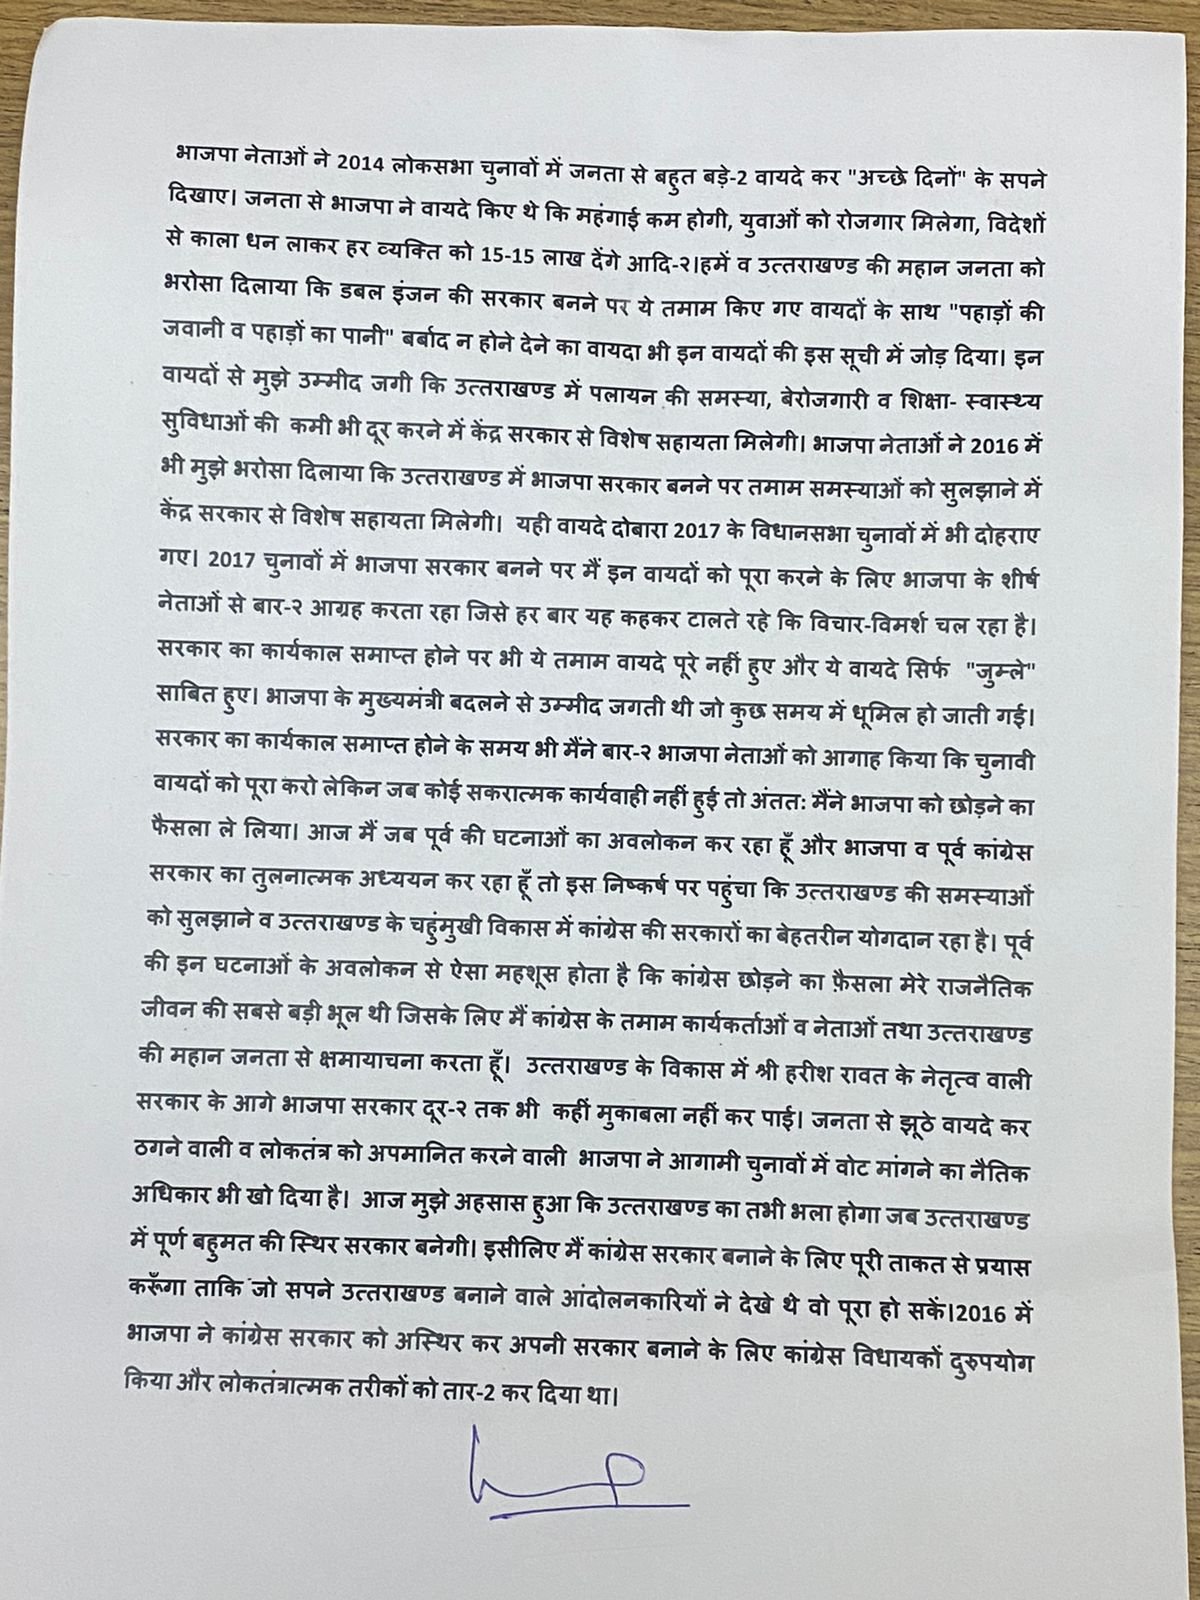 भाजपा नेताओं ने 2014 लोकसभा चुनावों में जनता से बहुत बड़े-2 वायदे कर "अच्छे दिनों" के सपने
दिखाए। जनता से भाजपा ने वायदे किए थे कि महंगाई कम होगी, युवाओं को रोजगार मिलेगा, विदेशों
से काला धन लाकर हर व्यक्ति को 15-15 लाख देंगे आदि-२।हमें व उत्तराखण्ड की महान जनता को
भरोसा दिलाया कि डबल इंजन की सरकार बनने पर ये तमाम किए गए वायदों के साथ "पहाड़ों की
जवानी व पहाड़ों का पानी" बर्बाद न होने देने का वायदा भी इन वायदों की इस सूची में जोड़ दिया। इन
वायदों से मुझे उम्मीद जगी कि उत्तराखण्ड में पलायन की समस्या, बेरोजगारी व शिक्षा- स्वास्थ्य
सुविधाओं की कमी भी दूर करने में केंद्र सरकार से विशेष सहायता मिलेगी। भाजपा नेताओं ने 2016 में
भी मुझे भरोसा दिलाया कि उत्तराखण्ड में भाजपा सरकार बनने पर तमाम समस्याओं को सुलझाने में
केंद्र सरकार से विशेष सहायता मिलेगी। यही वायदे दोबारा 2017 के विधानसभा चुनावों में भी दोहराए
गए। 2017 चुनावों में भाजपा सरकार बनने पर मैं इन वायदों को पूरा करने के लिए भाजपा के शीर्ष
नेताओं से बार-२ आग्रह करता रहा जिसे हर बार यह कहकर टालते रहे कि विचार-विमर्श चल रहा है।
सरकार का कार्यकाल समाप्त होने पर भी ये तमाम वायदे पूरे नहीं हुए और ये वायदे सिर्फ "जुम्ले"
साबित हुए। भाजपा के मुख्यमंत्री बदलने से उम्मीद जगती थी जो कुछ समय में धूमिल हो जाती गई।
सरकार का कार्यकाल समाप्त होने के समय भी मैंने बार-२ भाजपा नेताओं को आगाह किया कि चुनावी
वायदों को पूरा करो लेकिन जब कोई सकरात्मक कार्यवाही नहीं हुई तो अंततः मैंने भाजपा को छोड़ने का
फैसला ले लिया। आज मैं जब पूर्व की घटनाओं का अवलोकन कर रहा हूँ और भाजपा व पूर्व कांग्रेस
सरकार का तुलनात्मक अध्ययन कर रहा हूँ तो इस निष्कर्ष पर पहुंचा कि उत्तराखण्ड की समस्याओं
को सुलझाने व उत्तराखण्ड के चहुंमुखी विकास में कांग्रेस की सरकारों का बेहतरीन योगदान रहा है। पूर्व
की इन घटनाओं के अवलोकन से ऐसा महशूस होता है कि कांग्रेस छोड़ने का फ़ैसला मेरे राजनैतिक
जीवन की सबसे बड़ी भूल थी जिसके लिए मैं कांग्रेस के तमाम कार्यकर्ताओं व नेताओं तथा उत्तराखण्ड
की महान जनता से क्षमायाचना करता हूँ। उत्तराखण्ड के विकास में श्री हरीश रावत के नेतृत्व वाली
सरकार के आगे भाजपा सरकार दूर-२ तक भी कहीं मुकाबला नहीं कर पाई। जनता से झूठे वायदे कर
ठगने वाली व लोकतंत्र को अपमानित करने वाली भाजपा ने आगामी चुनावों में वोट मांगने का नैतिक
अधिकार भी खो दिया है। आज मुझे अहसास हुआ कि उत्तराखण्ड का तभी भला होगा जब उत्तराखण्ड
में पूर्ण बहुमत की स्थिर सरकार बनेगी। इसीलिए मैं कांग्रेस सरकार बनाने के लिए पूरी ताकत से प्रयास
करूँगा ताकि जो सपने उत्तराखण्ड बनाने वाले आंदोलनकारियों ने देखे थे वो पूरा हो सकें।2016 में
भाजपा ने कांग्रेस सरकार को अस्थिर कर अपनी सरकार बनाने के लिए कांग्रेस विधायकों दुरुपयोग
किया और लोकतंत्रात्मक तरीकों को तार-2 कर दिया था।